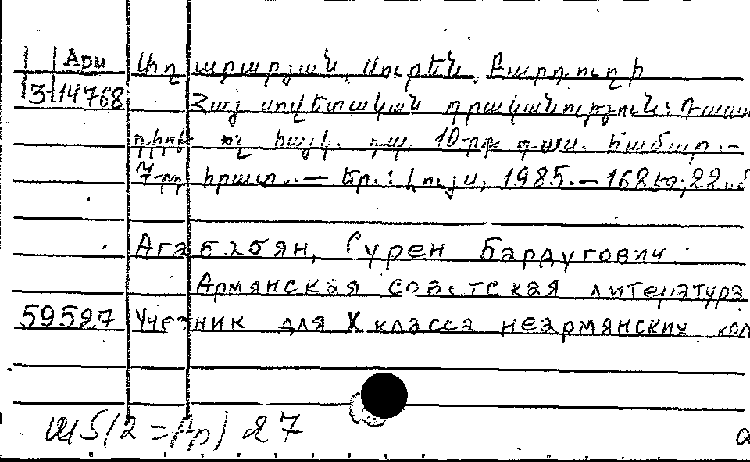 Ары
Աղաբաբյան, Սուրեն Բարդուղի
3 14768
Հայ սովետական գրականություն: Դաս
գիրք ոչ հայկ. դպ. 10-րդ դաս. համար.-
7-րդ հրատ. — Եր.: Լույս, 1985. — 168 էջ; 22 սմ
Агабабян, Сурен Бардугович
Армянская советская литература
59527 Учебник для X класса неармянских
Ш5(2=Ар) 27